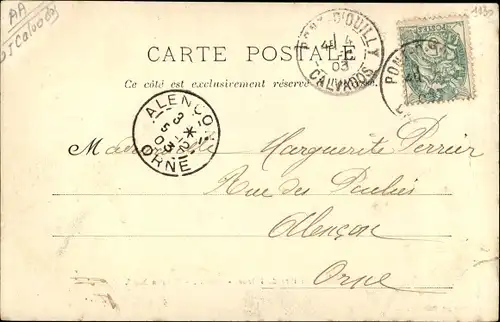 AA
Calvados
1133
CARTE POSTALE
Ce côté est exclusivement réservé
PONT-D'OUILLY
4
03
CALVADOS
PON
ALENÇON
3
5
03
ORNE
Mademoiselle Marguerite Perrier
Rue des Poulies
Alençon
Orne